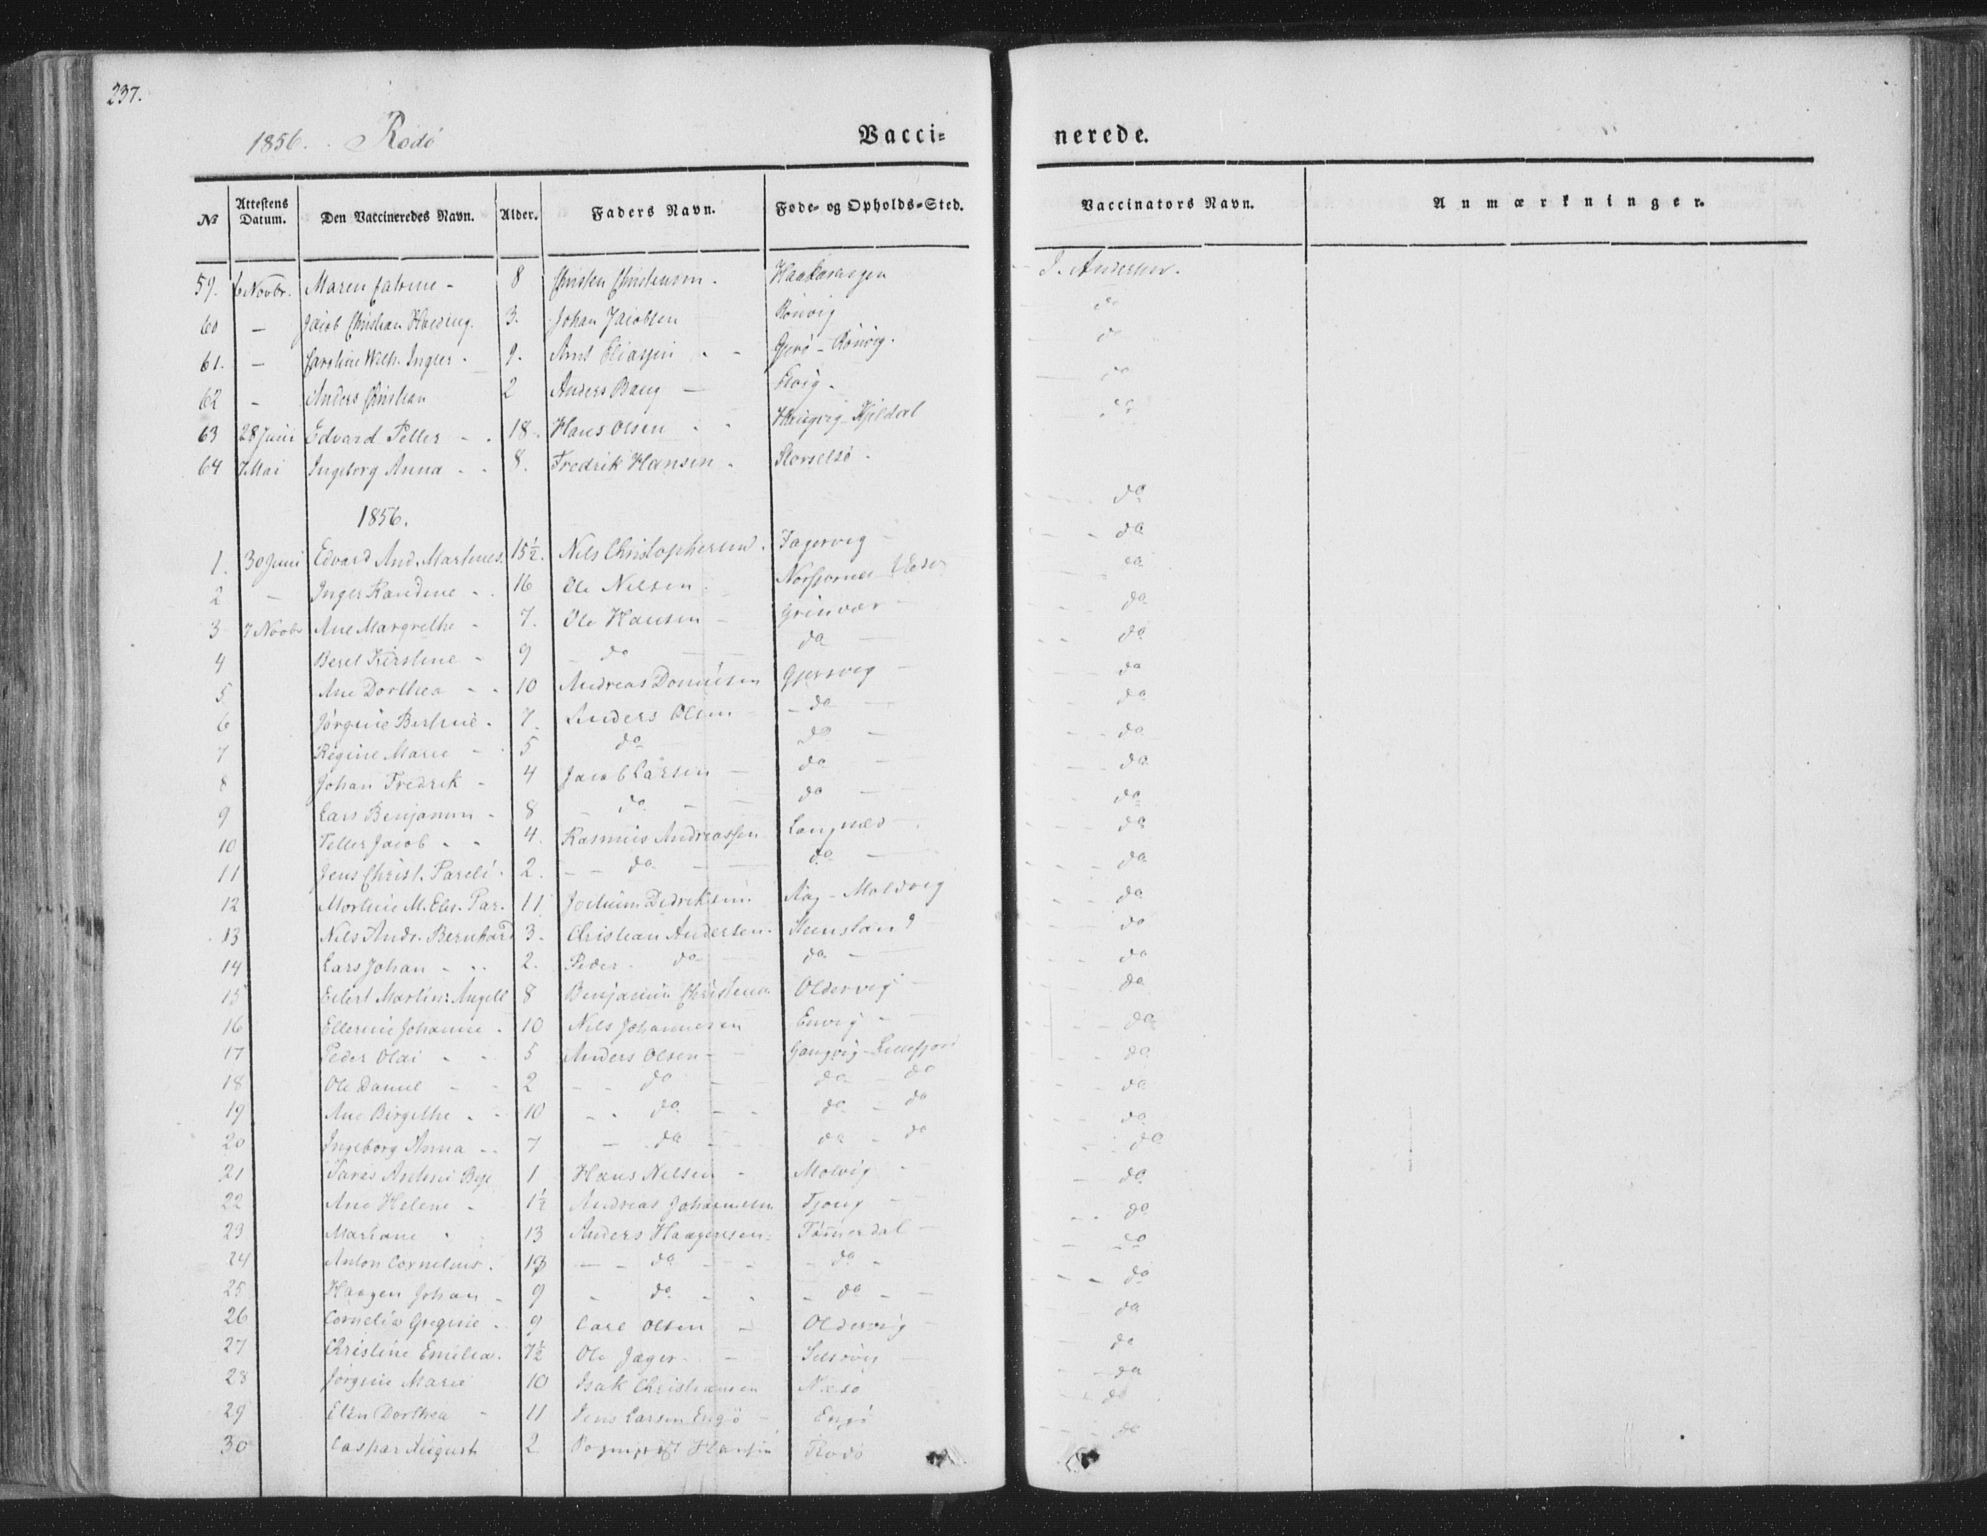 237.
1856. Rodö
Vacci= nerede.
No Attestens Datum. Den Vaccineredes Navn. Alder. Faders Navn. Føde- og Opholds-Sted. Vaccinators Navn. Anmærkninger.
59. 6 Novbr. Maren - 8 Christen Christensen. J. Andersen.
60 — Jacob Christian 3. Johan Jacobsen Rönvig do
61. — Caroline Wilh. Inger - 9. Arnt Eliassen - - Rönvig. do
62 - Anders Christian 2 Anders Bang — do
63 28 Juni Edvard Petter - - 18. Hans Olsen - - Kjeldal do
64 7 Mai Ingeborg Anna - - 8. Fredrik Hansen - Storselsö - do
1856.
1. 30 Juni Edvard And. Martines. 15½. Nils Christophersen. Fagervig - do
2 — Inger - - 16 Ole Nilsen. do
3 7 Novbr Ane Margrethe - 7. Ole Hansen - Grinvær - do
4 Beret Kirstine - 9 - do - do - do
5 Ane Dorthea - - 10 Andreas Gjersvig - do
6 Jörgine Bertine - 7. Anders Olsen - - do - do
7 Regine Marie - - 5 do do - do
8 Johan Fredrik - 4 Jacob Larsen - do - do
9 Lars Benjamin - 8 - do - do - do
10 Petter Jacob - - 4. Rasmus Andreassen Langnæs - do
11 Jens Christ. Pareli - 2. - - do - do - do
12 M. Par. 11 Jochum Didriksen. Aag - Moldvig do
13 Nils Andr. Bernhard 3. Christian Andersen. Stensland do
14 Lars Johan - - 2. Peder - do do - do
15 Eilert Martin: Angell 8 Benjamin Oldervig - do
16 Ellerine Johanne - 10 Nils Johannesen - - do
17 Peder Olai - - 5 Anders Olsen - - do
18 Ole Daniel - - 2 - - do - do - do do
19 Ane Birgithe - - 10 - - do - - do - do do
20 Ingeborg Anna - - 7 - do - do - do do
21 1 Hans Nilsen - Molvig - do
22 Ane Helene - 1½ Andreas Johannesen Tjong - do
23 Mariane - 13 Anders Haagensen - do
24 Anton Cornelius. - - do - - - do - do
25 Haagen Johan - 9 - do - - - do - - do
26 Cornelia - 9 Carl Olsen - Oldervig - do
27 Christine Emilia. 7½ Ole Jæger. - - do
28 Jörgine Marie 10 Isak Christiansen Næsö do
29 Elen Dorthea - 11 Jens Larsen Engö - Engö do
30 Caspar August 2 Hansen Rodö do